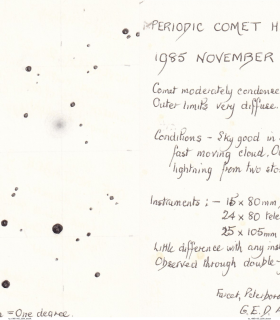 PERIODIC COMET H
1985 NOVEMBER
Comet moderately condense
Outer limits very diffuse.
Conditions - Sky good in
fast moving cloud. O
lightning from two sto
Instruments ; - 15 x 80mm
24 x 80 tele
25 x 105mm
Little difference with any ins
Observed through double-
Farcet, Peterboro
G.E.D. A
= One degree.